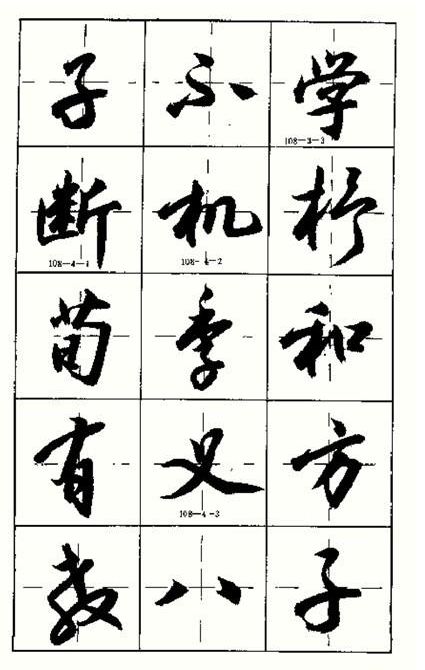 子不学
108-3-3
断机杼
108-4-1 108-4-2
荀季和
有义方
108-4-3
教八子